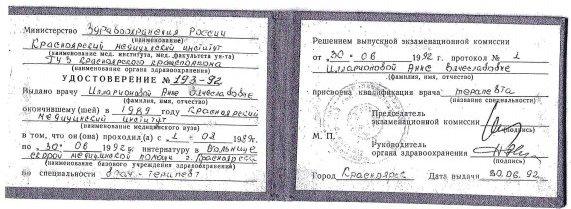 Министерство Здравоохранения России
(наименование)
Красноярский медицинский институт
(наименование мед. института, мед. факультета ун-та)
ГУЗ Красноярского крайисполкома
(наименование органа здравоохранения)
УДОСТОВЕРЕНИЕ № 193-92
Выдано врачу Илларионовой Анне Вячеславовне
(фамилия, имя, отчество)
окончившему(шей) в 1989 году Красноярский
медицинский институт
(наименование медицинского вуза)
в том, что он(она) проходил(а) с 1 - 08 1989г.
по 30 - 06 1992г. интернатуру в больнице
скорой медицинской помощи г. Красноярска
(наименование базового учреждения здравоохранения)
по специальности врач-терапевт
Решением выпускной экзаменационной комиссии
от 30 - 06 1992 г. протокол № 1
Илларионовой Анне Вячеславовне
(фамилия, имя, отчество)
присвоена квалификация врача терапевта
(название специальности)
Председатель
экзаменационной комиссии
(подпись)
М. П.
Руководитель
органа здравоохранения
(подпись)
Город Красноярск Дата выдачи 30.06.92